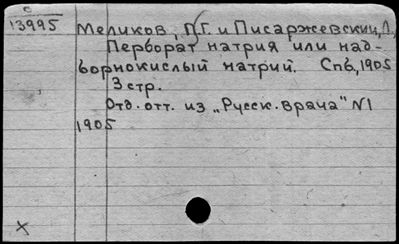 с
13995 Меликов, П.Г. и Писаржевский, Л.,
Перборат натрия или над-
борнокислый натрий. Спб, 1905
3 стр.
Отд. отт. из „Русск. врача" N1
1905
х